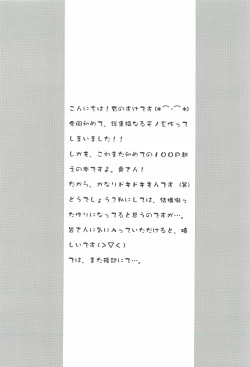 こんにちは！男のすけです(*⌒-⌒*)
今回初めて、総集編なるモノを作って
しまいました！！
しかも、これまた初めての１００Ｐ超
えの本ですよ。奥さん！
だから、かなりドキドキもんです（笑）
どうでしょう？私にしては、結構凝っ
た作りになってると思うのですが…。
皆さんに気に入っていただけると、嬉
しいです(＞▽＜)
では、また後記にて…。